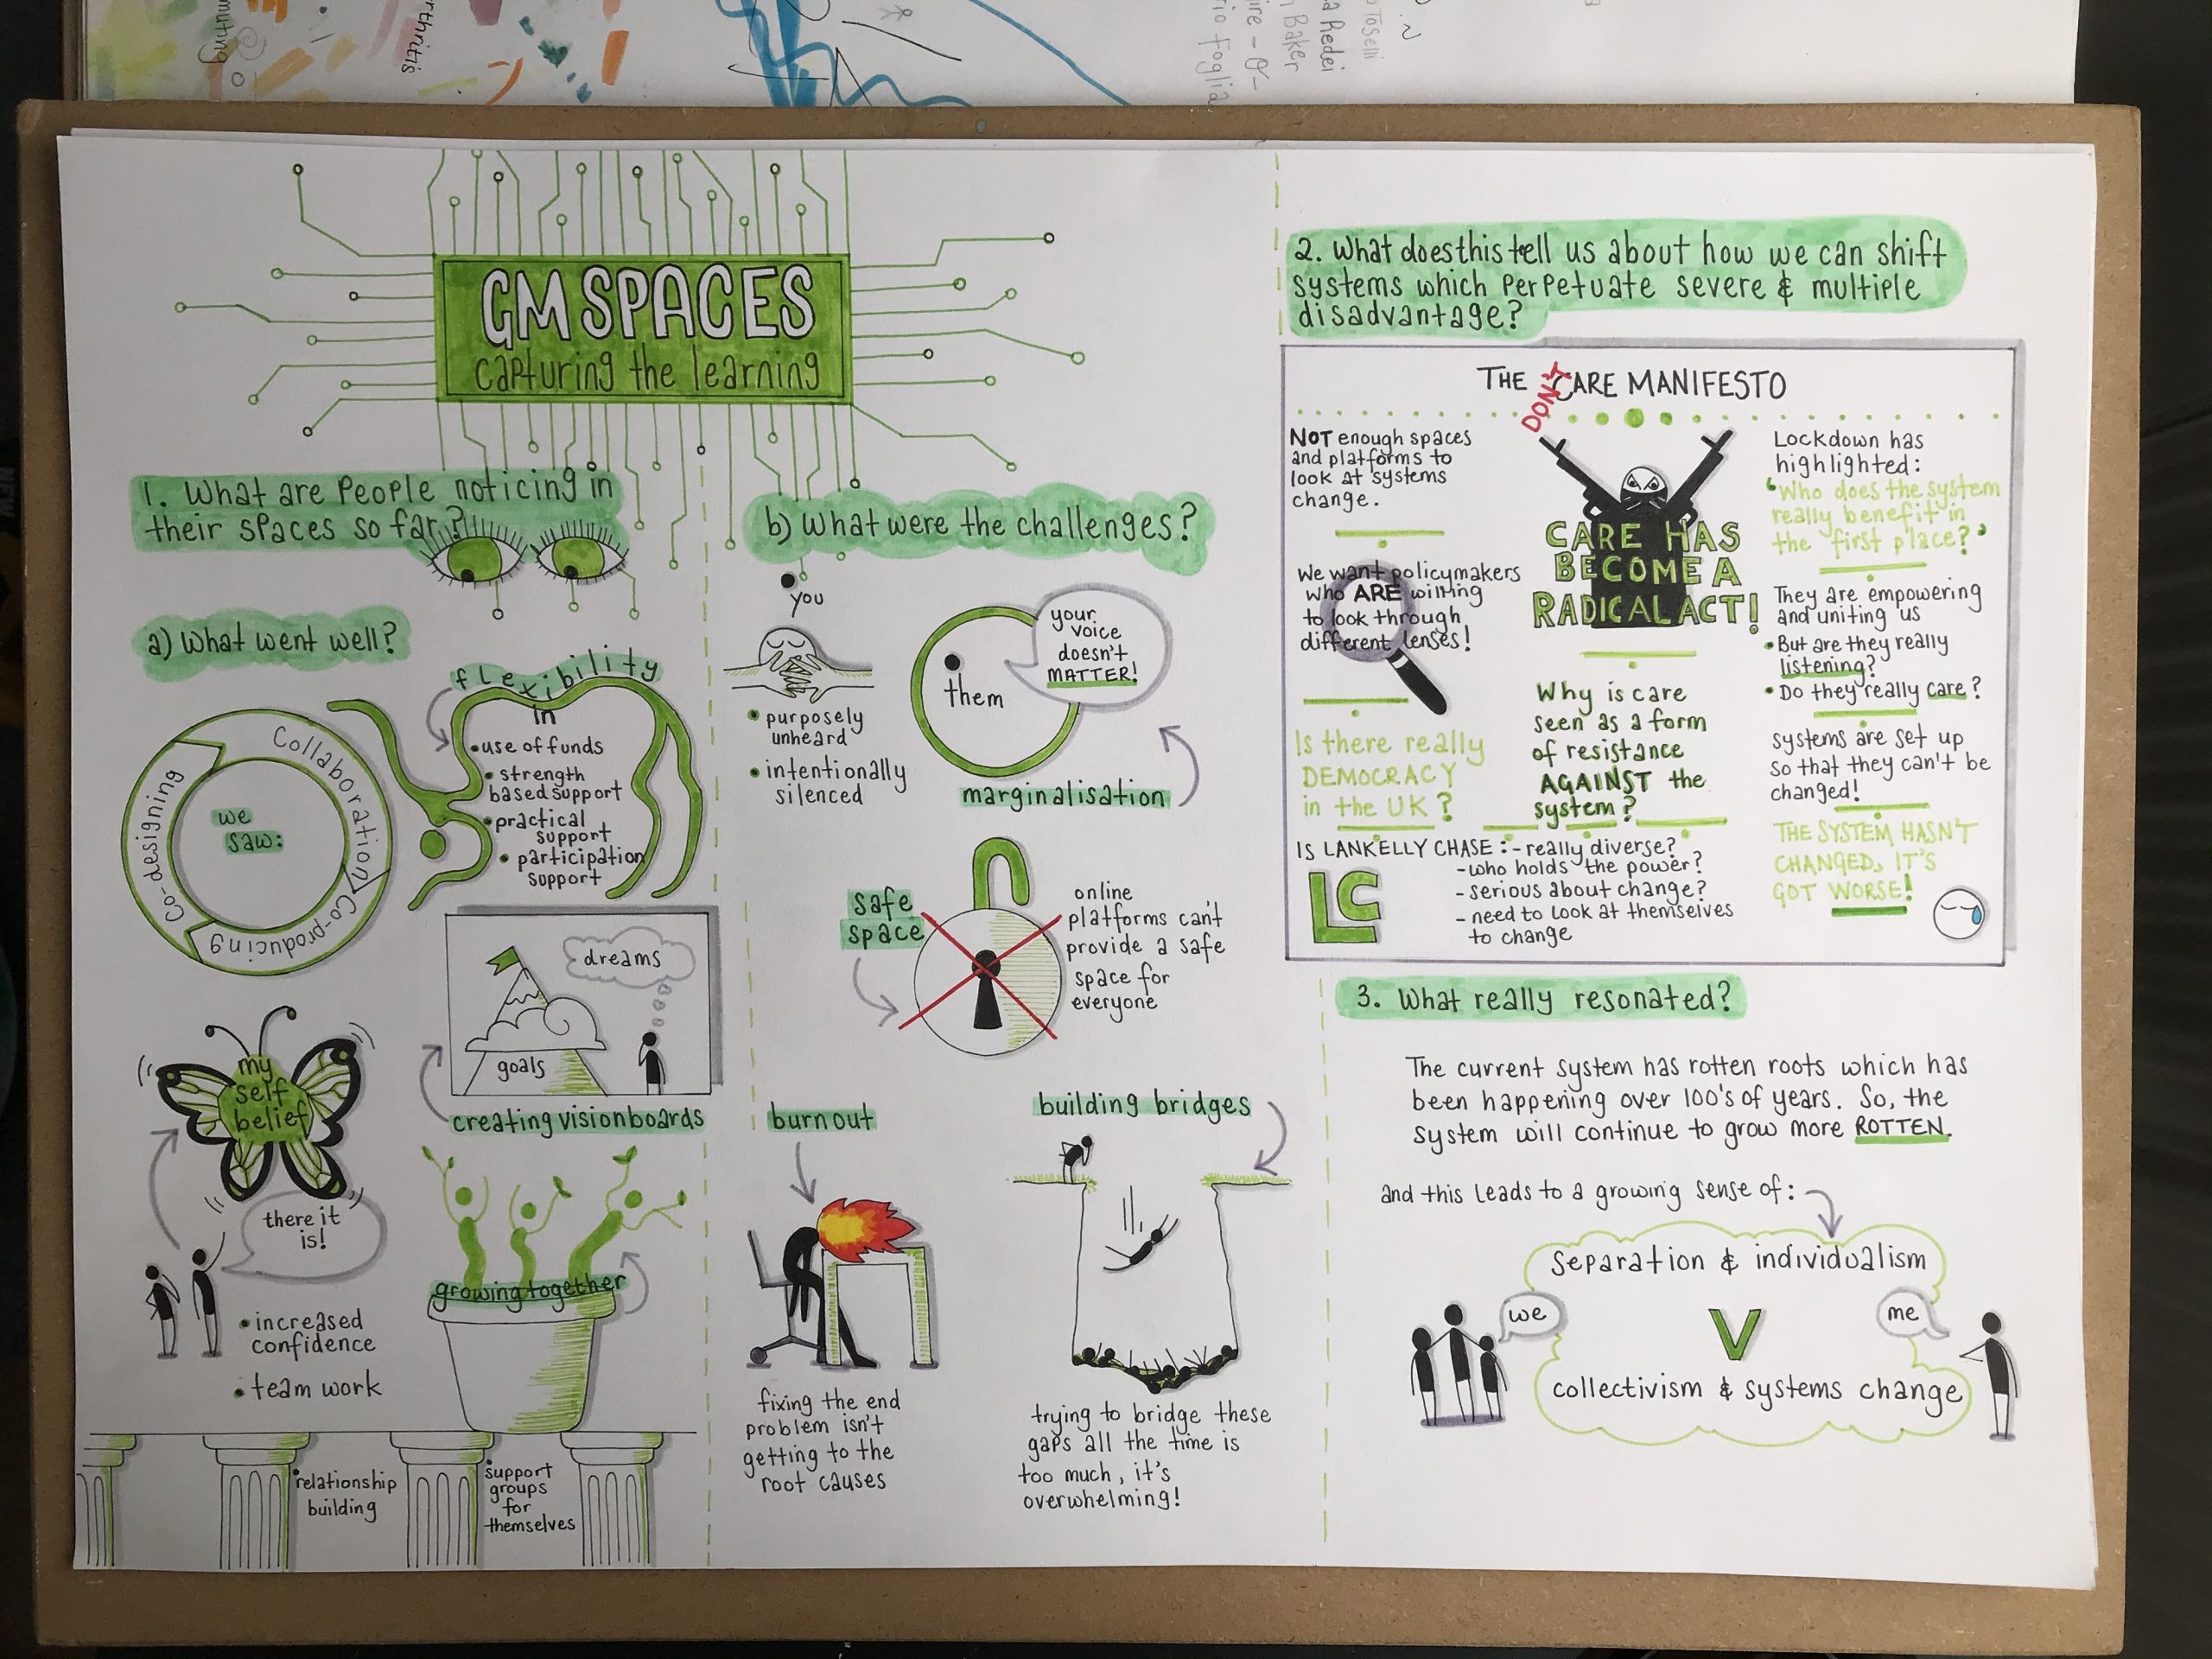 muting
arthritis
rio Foglia
ire - O-
Baker
a Redei
o Toselli
GM SPACES
capturing the learning
1. What are people noticing in
their spaces so far?
a) What went well?
we
saw:
Collaboration
Co-producing
Co-designing
flexibility
in
•use of funds
• strength
based support
•practical
support
• participation
support
dreams
goals
creating visionboards
my
self
belief
there it
is!
• increased
confidence
• team work
growing together
•relationship
building
•support
groups
for
themselves
b) What were the challenges?
you
• purposely
unheard
• intentionally
silenced
them
your
voice
doesn't
MATTER!
marginalisation
safe
space
online
platforms can't
provide a safe
space for
everyone
burnout
fixing the end
problem isn't
getting to the
root causes
building bridges
trying to bridge these
gaps all the time is
too much, it's
overwhelming!
2. What does this tell us about how we can shift
systems which perpetuate severe & multiple
disadvantage?
THE DON'T CARE MANIFESTO
NOT enough spaces
and platforms to
look at systems
change.
We want policymakers
who ARE willing
to look through
different lenses!
Is there really
DEMOCRACY
in the UK?
CARE HAS
BECOME A
RADICAL ACT!
Why is care
seen as a form
of resistance
AGAINST the
system?
Lockdown has
highlighted:
'Who does the system
really benefit in
the first place?'
They are empowering
and uniting us
• But are they really
listening?
• Do they really care?
systems are set up
so that they can't be
changed!
THE SYSTEM HASN'T
CHANGED, IT'S
GOT WORSE!
IS LANKELLY CHASE :- really diverse?
- who holds the power?
- serious about change?
- need to look at themselves
to change
LC
3. What really resonated?
The current system has rotten roots which has
been happening over 100's of years. So, the
system will continue to grow more ROTTEN.
and this leads to a growing sense of:
Separation & individualism
we
V
me
collectivism & systems change